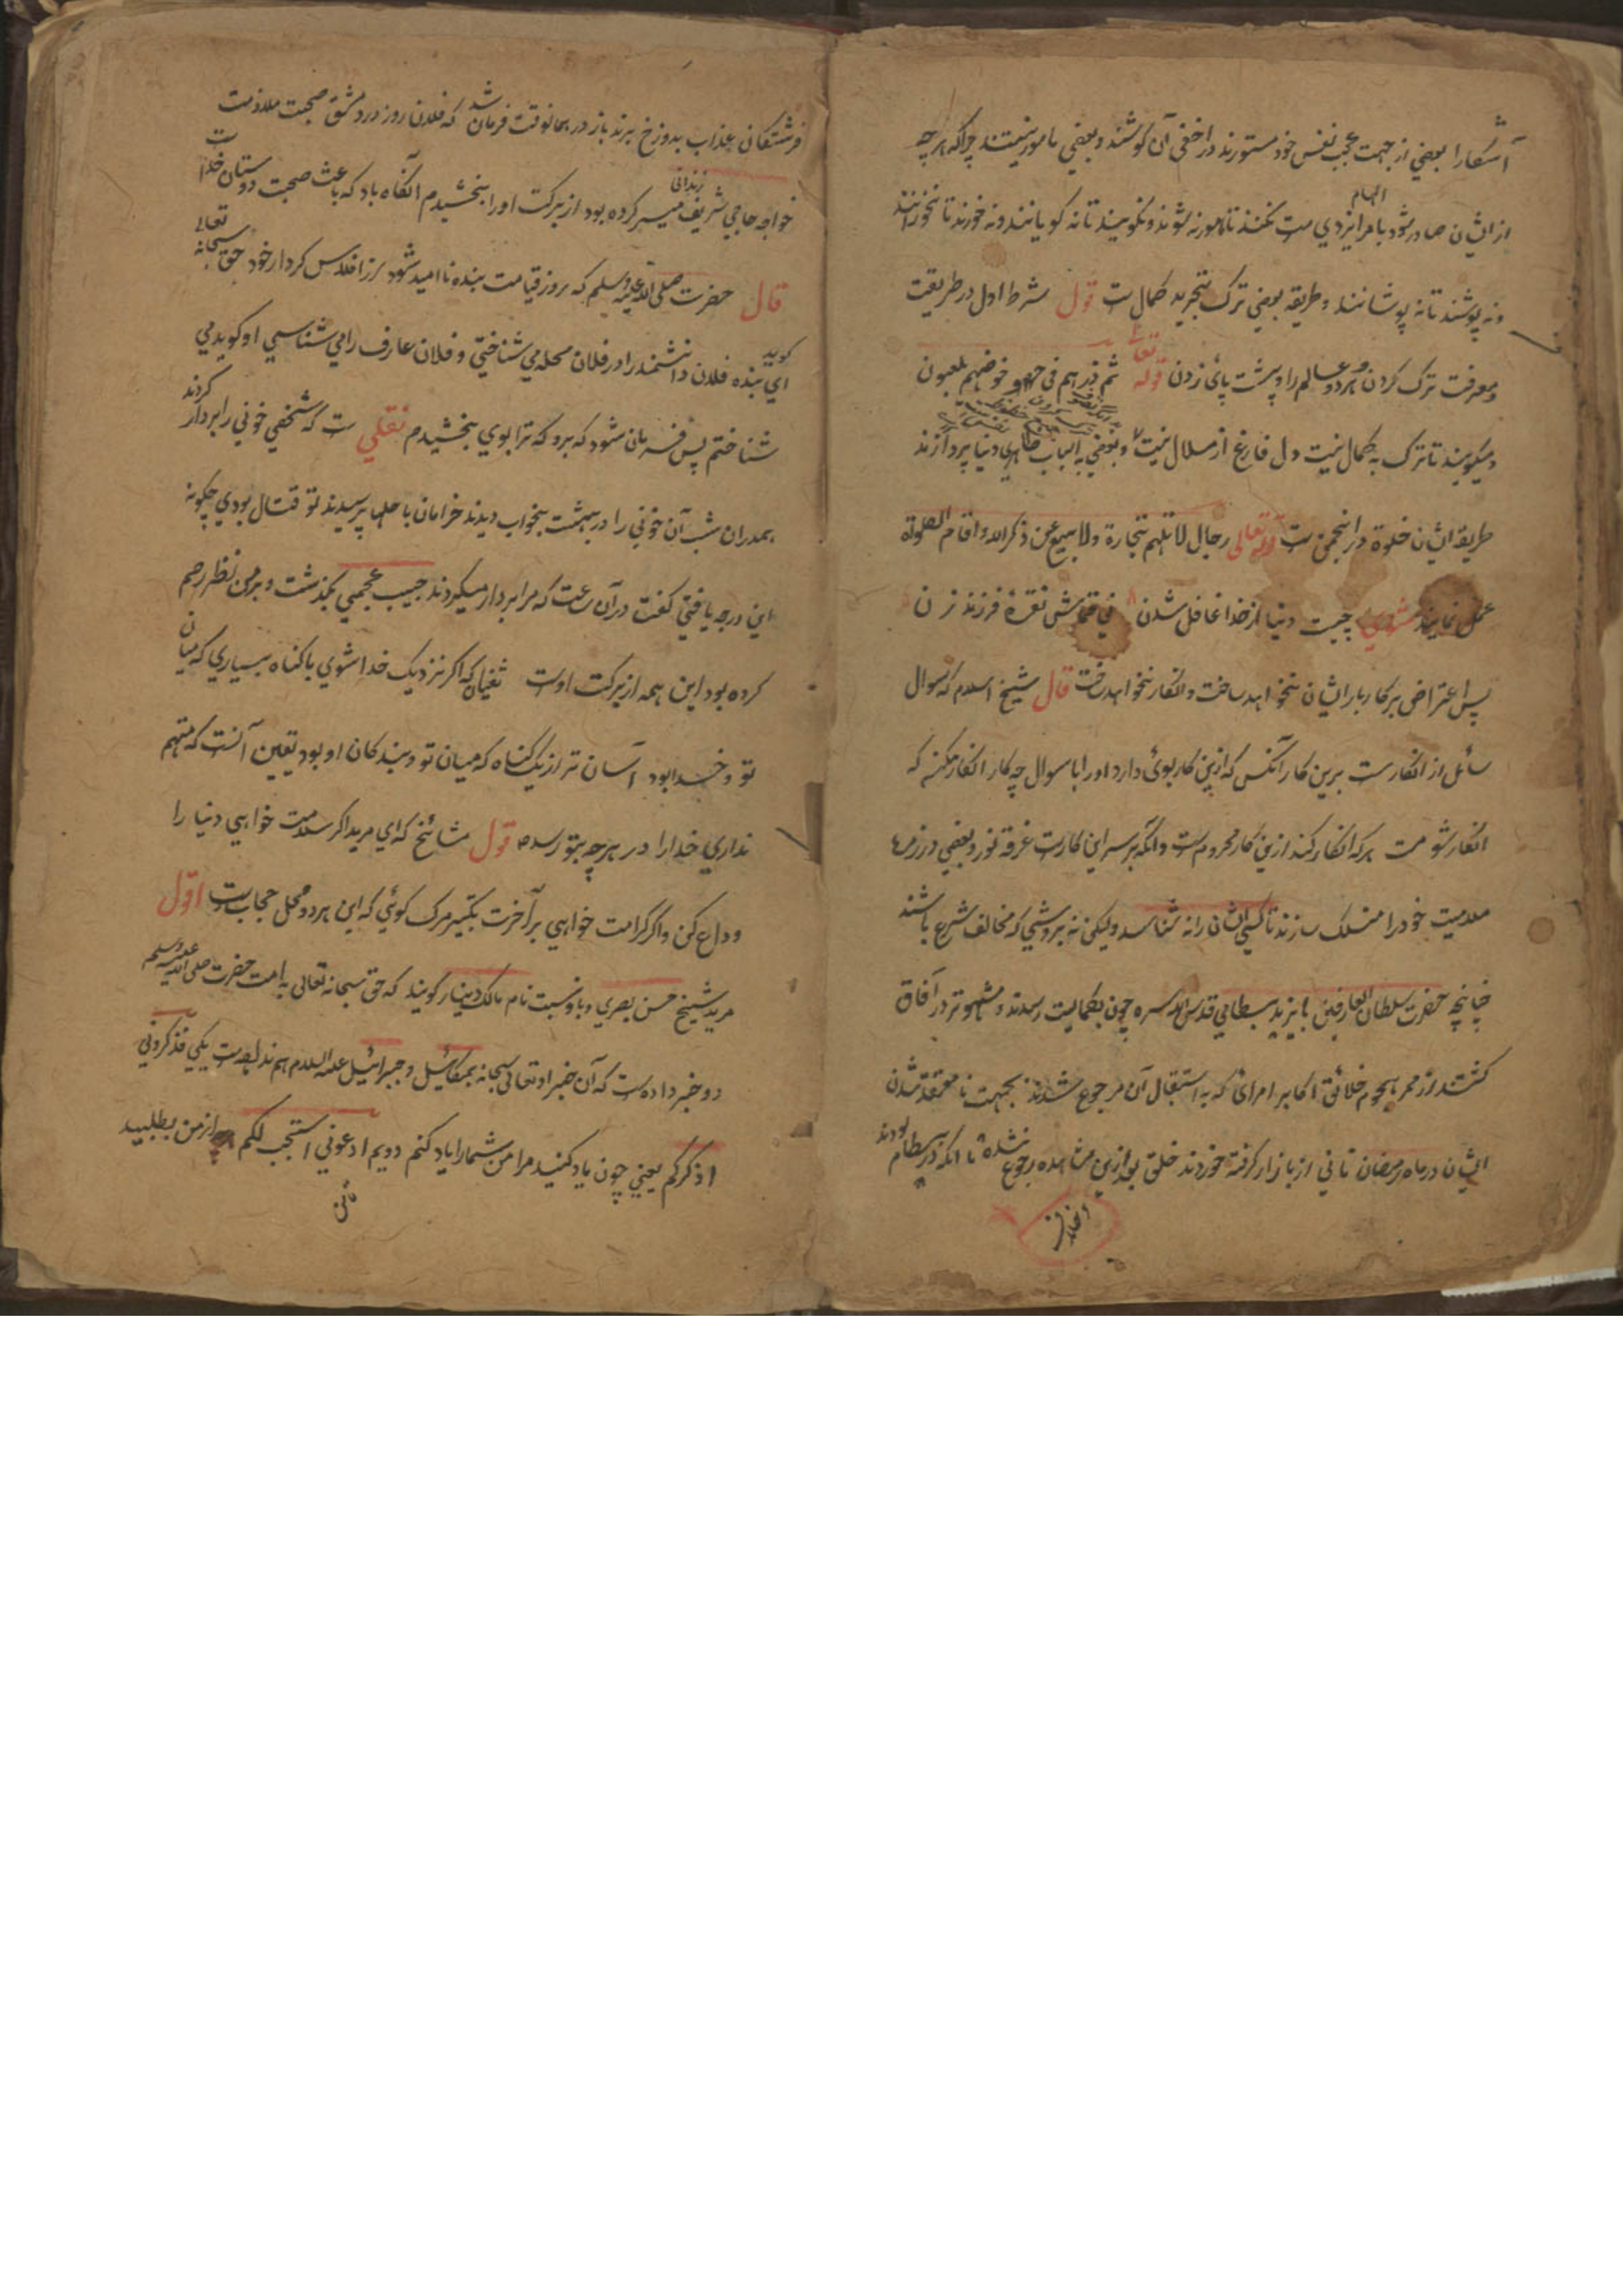 آشکارا بعضی از جهت عجب نفس خود مستورند در اخفی آن کوشند و بعضی مامور نیستند چراکه هر چه
از ایشان صادر شود بامر ایزدی ست نکنند تا مامور نشوند و نکویند تا نه کویانند و نه خورند تا نخورانند
الهام
و نه پوشند تا نه پوشانند و طریقه بعضی ترک تجرید کمال ست قول شرط اول در طریقت
و معرفت ترک کردن و هر دو عالم را و پشت پای زدن قوله تعالی ثم ذرهم فی خوضهم یلعبون
و میکویند تا ترک به کمال نیست دل فارغ از ملال نیست و بعضی به اسباب ظاهری دنیا پردازند
طریقه ایشان خلوة در انجمن ست قوله تعالی رجال لا تلهیهم تجارة ولا بیع عن ذکر الله و اقام الصلوة
عمل نمایند مثنوی چیست دنیا از خدا غافل شدن نی قماش نقره فرزند زن
پس اعتراض بر کار بار ایشان نخواهد ساخت و انکار نخواهد ساخت قال شیخ اسلام که سوال
سائل از انکار ست برین کار آنکس که ازین کار بوئ دارد او را با سوال چه کار انکار مکن که
انکار شوم ست هر که انکار کند ازین کار محروم ست و آنکه بر سر این کار ست غرقه نور و بعضی در زمره
ملامیت خود را منسلک سازند تا کسی ایشان را نه شناسد ولیکن نه بروشی که مخالف شرع باشند
چنانچه حضرت سلطان العارفین بایزید بسطامی قدس الله سره چون بکمالیت رسیدند و مشهور تر در آفاق
کشتند از ممر هجوم خلائق اکابر امرای که به استقبال آن مرجوع شدند بجهت نا معتقد شدن
ایشان در ماه رمضان نانی از بازار کرفته خوردند خلق را ازین مشاهده رجوع نشده تا آنکه در بسطام بودند
فرشتکان عذاب بدوزخ برند باز در همانوقت فرمان شد که فلان روز در دمشق صحبت ملازمت
خواجه حاجی شریف زندانی میسر کرده بود از برکت او را بخشیدم انکاه باد که باعث صحبت دوستان خدا ست
قال حضرت صلی الله علیه وسلم که بروز قیامت بنده نا امید شود از افلاس کردار خود حق سبحانه تعالی
کوید ای بنده فلان دانشمند را در فلان محله می شناختی و فلان عارف را می شناسی او کوید می
شناختم پس فرمان شود که برو که ترا بوی بخشیدم نقلی ست که شخصی خونی را بردار کردند
همدران شب آن خونی را در بهشت بخواب دیدند خرامان با حلها پرسیدند تو قتال بودی چکونه
این درجه یافتی کفت در آن ساعت که مرا بردار میکردند حبیب عجمی بکذشت و بر من نظر رحم
کرده بود این همه از برکت اوست که اکر نزدیک خدا شوی با کناه بسیاری که میان
تو و خدا بود آسان تر از یک کناه که میان تو و بندکان او بود یقین آنست که متهم
نداری خدا را در هر چه بتو رسد قول مشائخ که ای مرید اکر سلامت خواهی دنیا را
وداع کن و اکر کرامت خواهی بر آخرت تکبیر مرک کوئی که این هر دو محل حجاب ست اول
مرید شیخ حسن بصری نام مالک دینار کویند که حق سبحانه تعالی به امت حضرت صلی الله علیه وسلم
دو خبر داده ست که آن خبر او تعالی سبحانه بمیکائیل و جبرائیل علیه السلام هم نداده ست یکی فاذکرونی
اذکرکم یعنی چون یاد کنید مرا من شما را یاد کنم دویم ادعونی استجب لکم از من بطلبید